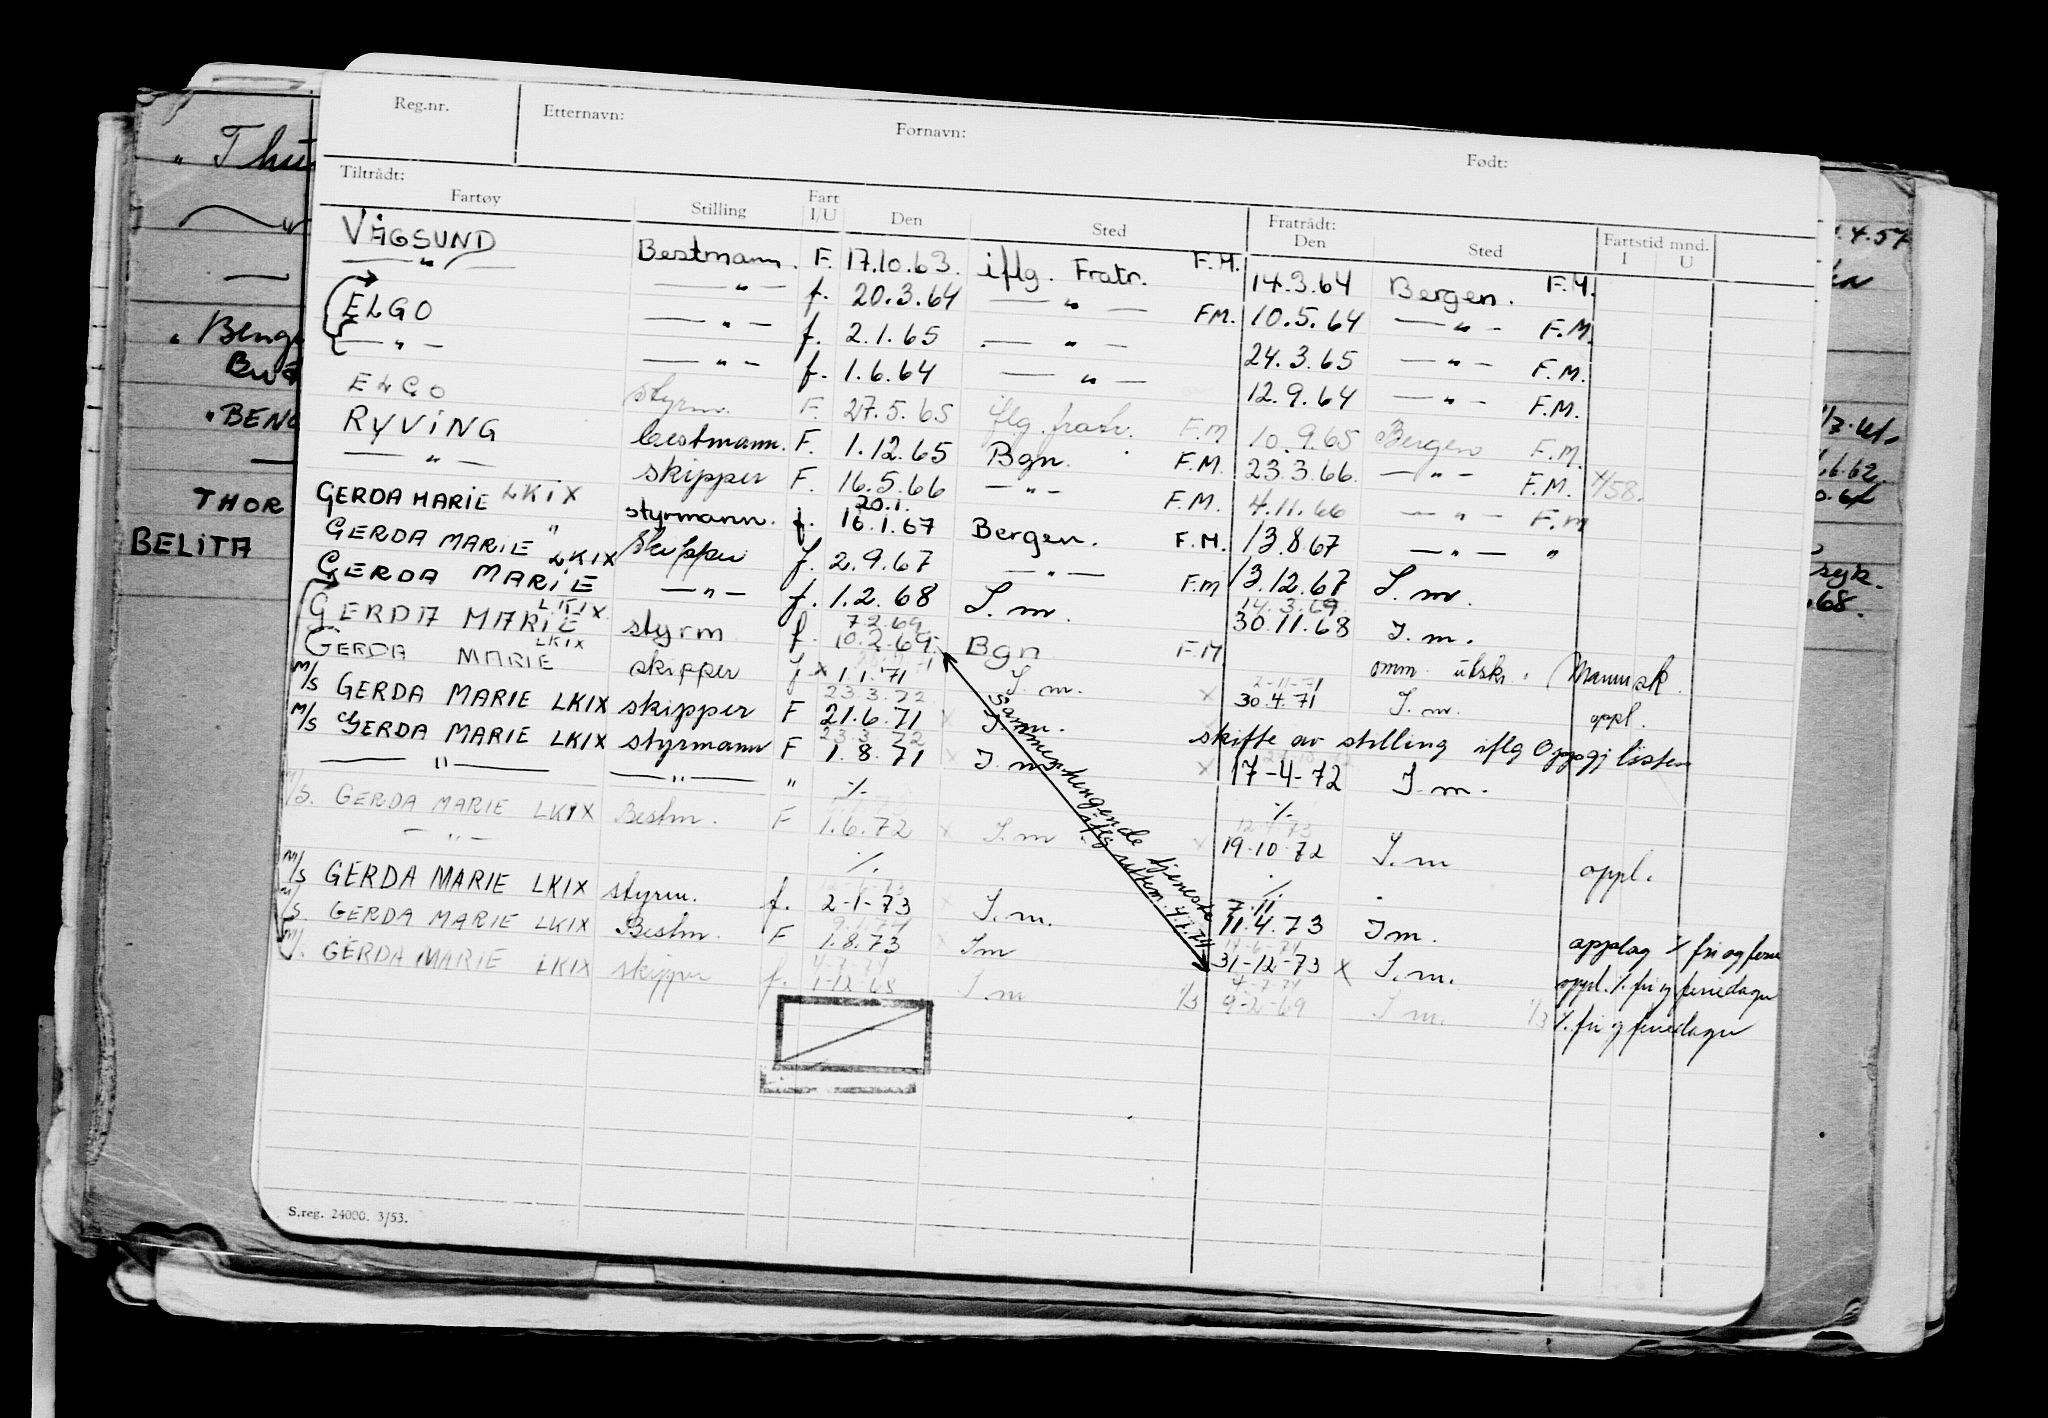 Reg.nr. Etternavn: Fornavn: Født:
Tiltrådt: Fratrådt:
Fartøy Stilling Fart I/U Den Sted Den Sted Fartstid mnd. I U
VÅGSUND Bestmann. F. 17.10.63. iflg. Fratr. F.M. 14.3.64 Bergen. F.M.
— " — — " — f. 20.3.64 — " — FM. 10.5.64 — " — F.M.
ELGO — " — f. 2.1.65 — " — 24.3.65 — " — F.M.
— " — — " — f. 1.6.64 — " — 12.9.64 — " — F.M.
ELGO styrm. F. 27.5.65 iflg. fratr. F.M 10.9.65 Bergen F.M.
RYVING bestmann. F. 1.12.65 Bgn. F.M. 23.3.66. — " — F.M. 4/58.
— " — skipper F. 16.5.66 — " — F.M. 4.11.66 — " — F.M
GERDA MARIE LKIX styrmann. f. 20.1. 16.1.67 Bergen. F.M. 13.8.67 — " — "
GERDA MARIE " skipper f. 2.9.67 — " — F.M 13.12.67 I.m.
GERDA MARIE LKIX — " — f. 1.2.68 I.m. 14.3.69. 30.11.68 I.m.
GERDA MARIE LKIX styrm f. 7.2.69 10.2.69. Bgn F.M omm. utskr. Mannsk.
GERDA MARIE LKIX skipper f x 1.1.71 I.m. x 2-11-71 30.4.71 I.m. oppl.
M/S GERDA MARIE LKIX skipper F 23.3.72 21.6.71 x I.m. skifte av stilling iflg Oppgj listen
M/S GERDA MARIE LKIX styrmann F 23.3.72 1.8.71 x I.m x 17-4-72 I.m.
— " — — " — " ./. ./.
M/S. GERDA MARIE LKIX Bestm. F 1.6.72 x I.m x 12.4.73 19.10.72 I.m oppl.
— " — ./. ./.
M/S GERDA MARIE LKIX styrm. f. 2-1-73 I.m. 7.11. 11.4.73 Im. opplag ./. fri og ferie
M/S. GERDA MARIE LKIX Bestm. F 1.8.73 Im 31-12-73 x I.m. oppl. ./. fri og feriedager
M/S. GERDA MARIE LKIX skipper f. 4-7-74 1-12-68 I.m 1/3 4-7-74 9-2-69 I.m. 1/3 ./. fri og feriedager
Sammenhengende tjeneste
iflg rederi. 4.7.74
S.reg. 24000. 3/53.
THOR
BELITA
" BENG
.4.57
syk.
.68.